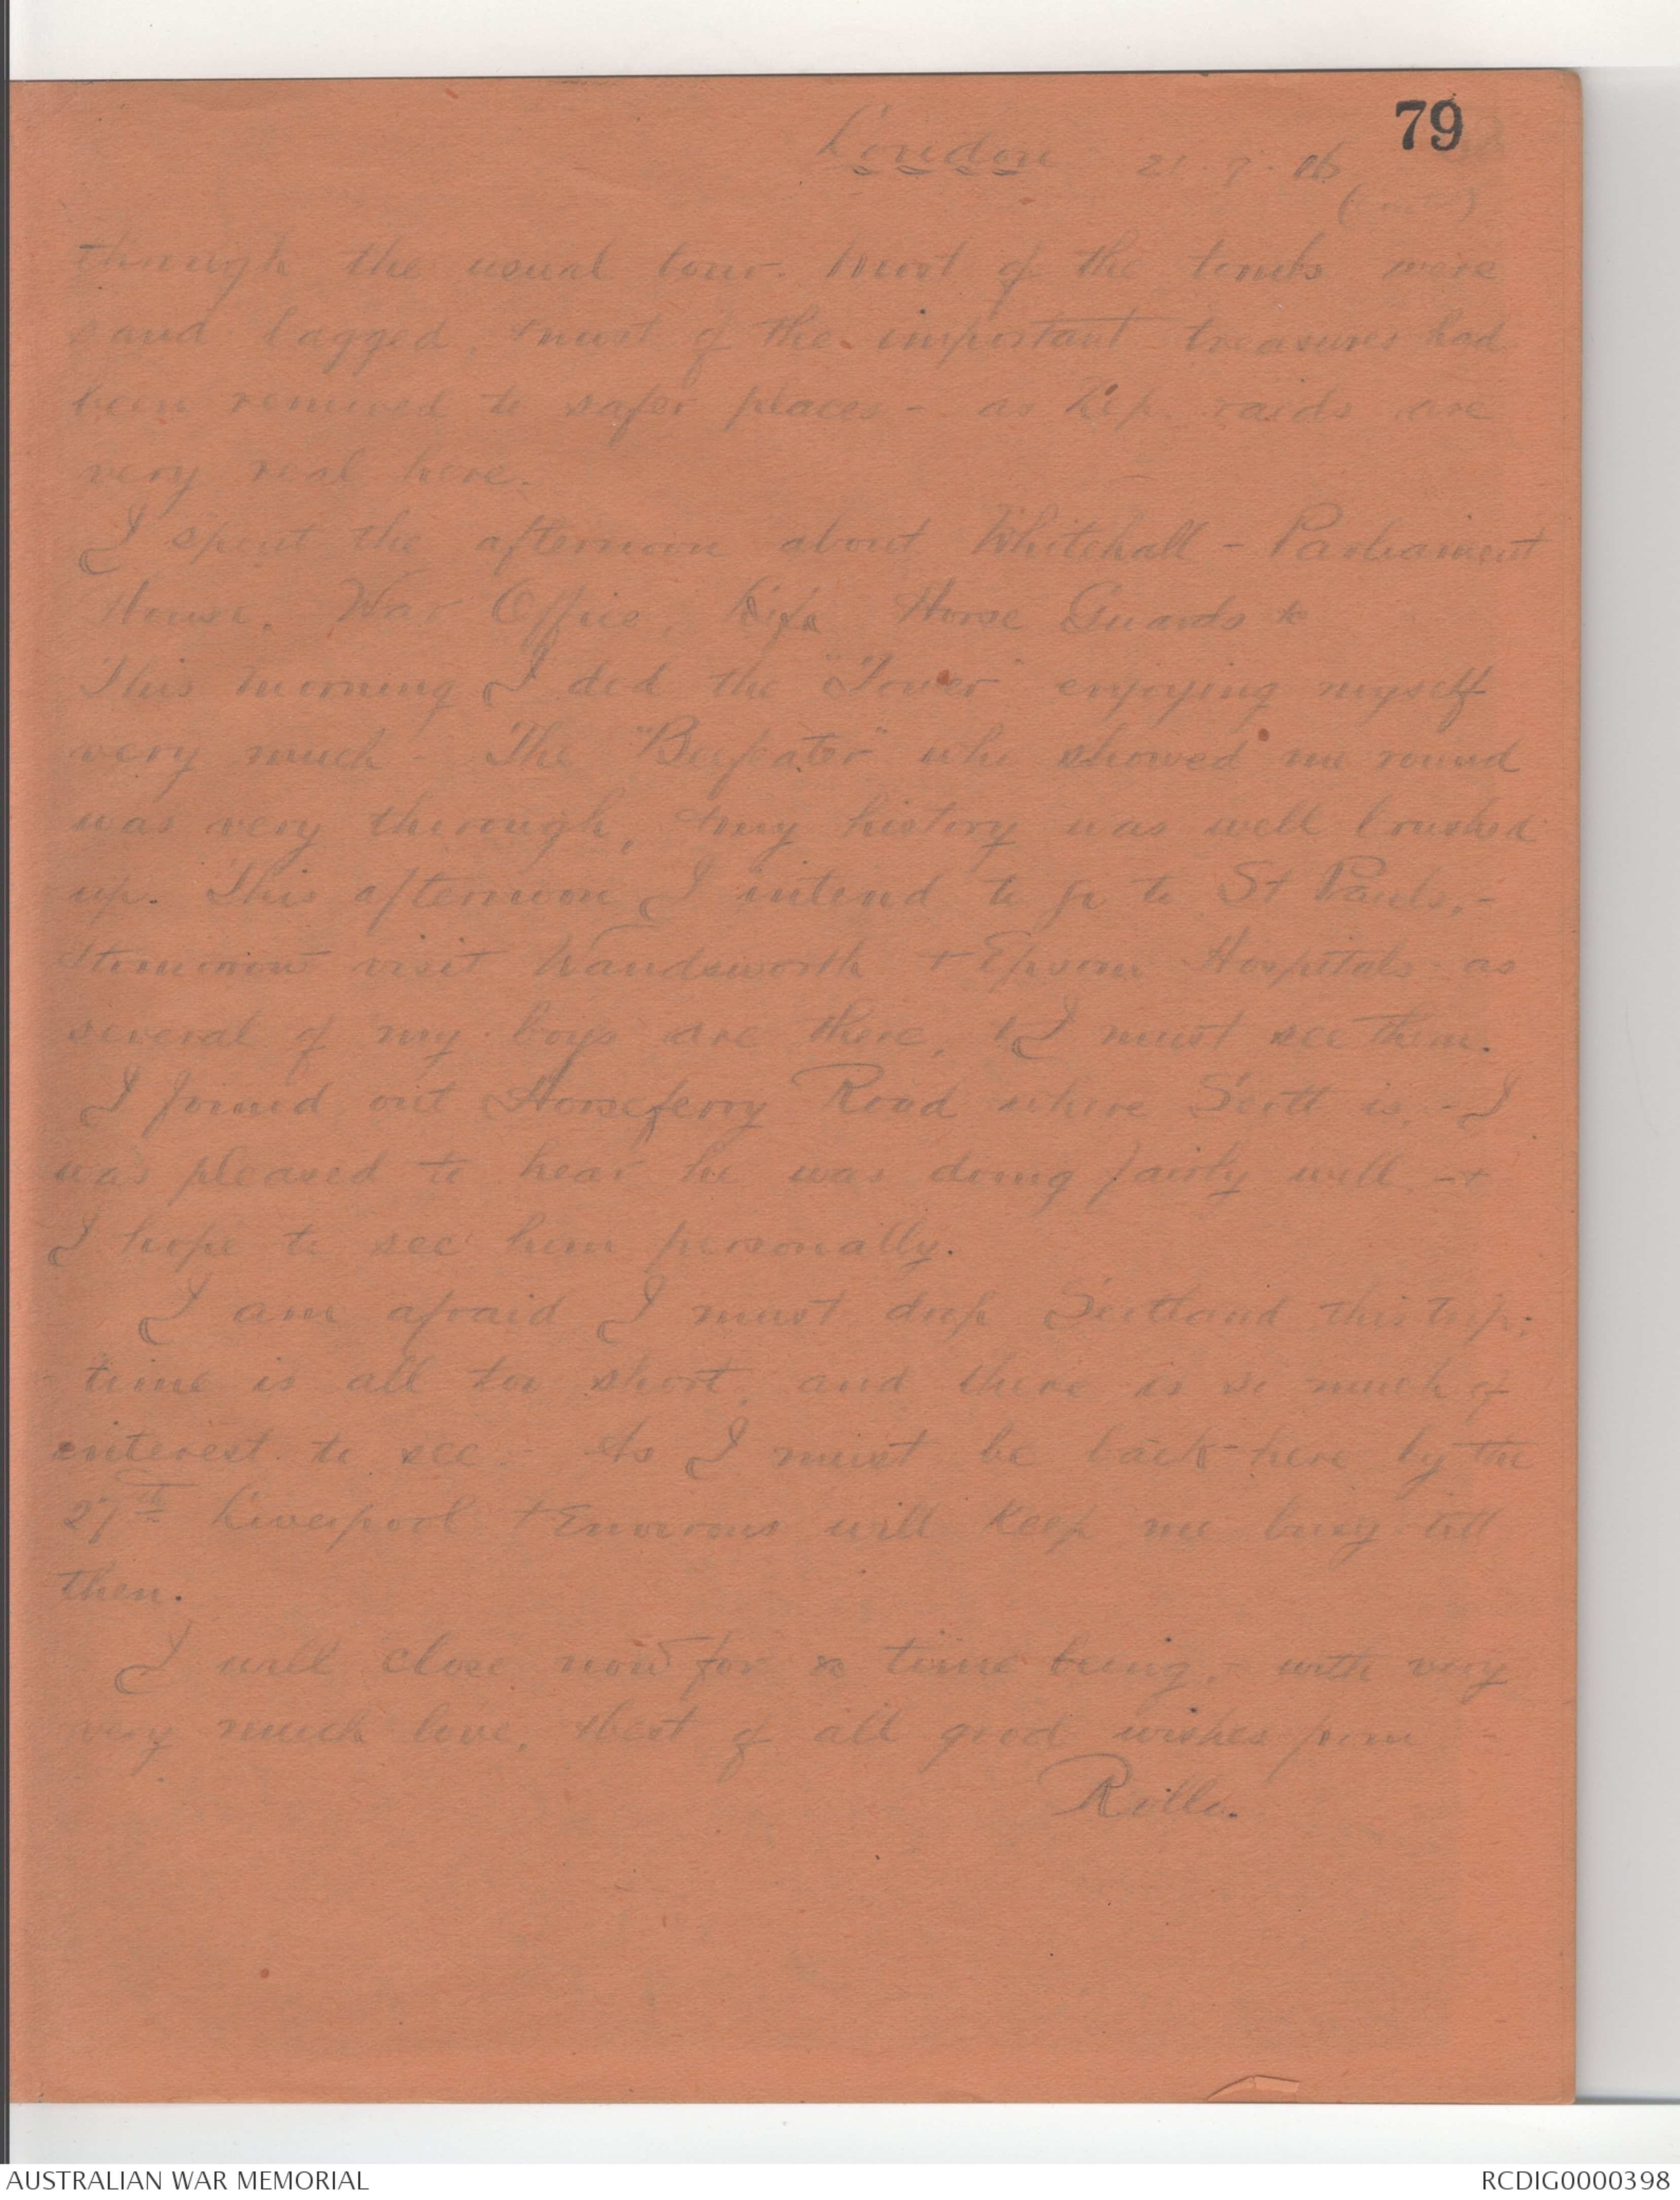 79
London 21.9.16
through the usual tour. Most of the tombs were
sand bagged, + most of the important treasures had
been removed to safer places - as Zep. raids are
very real here.
I spent the afternoon about Whitehall - Parliament
House, War Office, Horse Guards &c
This morning I did the "Tower" enjoying myself
very much - The "Beefeater" who showed me round
was very thorough, + my history was well brushed
up. This afternoon I intend to go to St Pauls, -
+ tomorrow visit Wandsworth + Epsom Hospitals as
several of my boys are there, + I must see them.
I found out Horseferry Road where Scott is, - I
was pleased to hear he was doing fairly well, - +
I hope to see him personally.
I am afraid I must drop Scotland this trip;
- time is all too short, and there is so much of
interest to see - As I must be back here by the
27th Liverpool + Environs will keep me busy till
then.
I will close now for time being, - with very
very much love, + best of all good wishes from -
Rollo.
AUSTRALIAN WAR MEMORIAL
RCDIG0000398